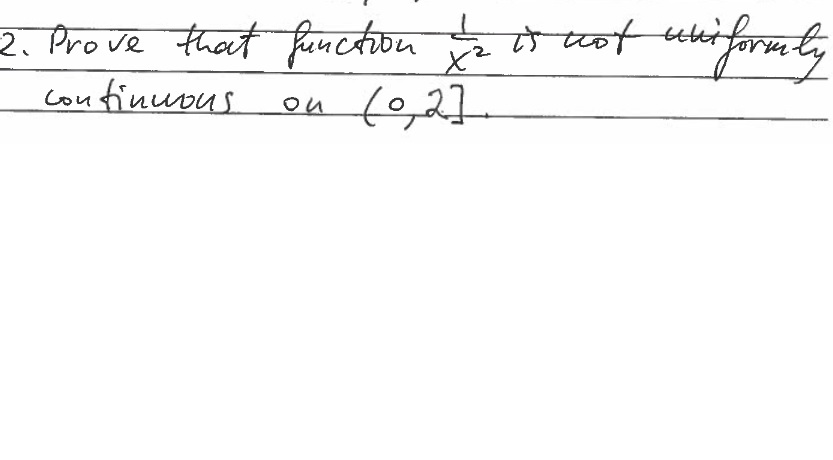 2. Prove that function 1/x² is not uniformly
continuous on (0,2].